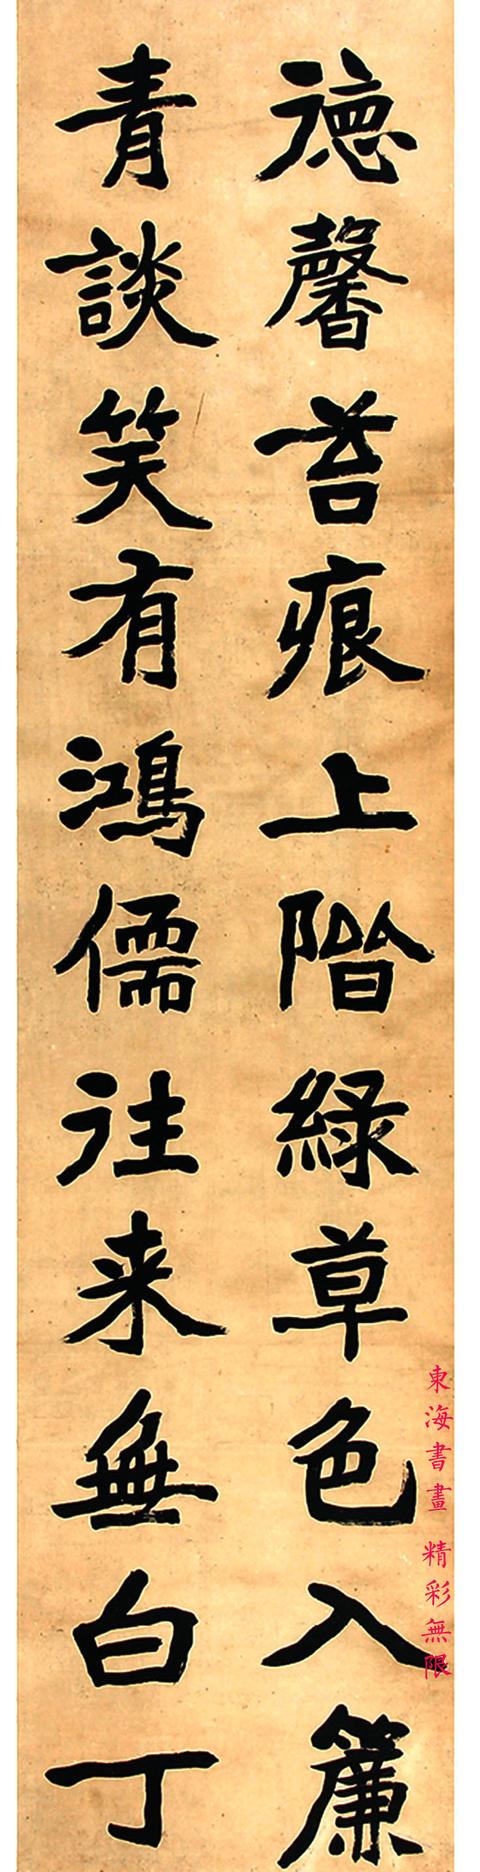 德馨苔痕上階綠草色入簾
青談笑有鴻儒往来無白丁
東海書畫 精彩無限